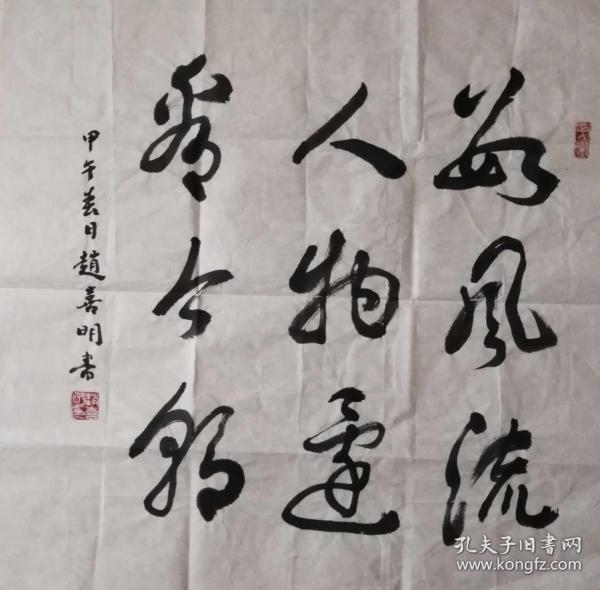 数风流
人物还
看今朝
甲午春日趙喜明书
孔夫子旧書网
www.kongfz.com